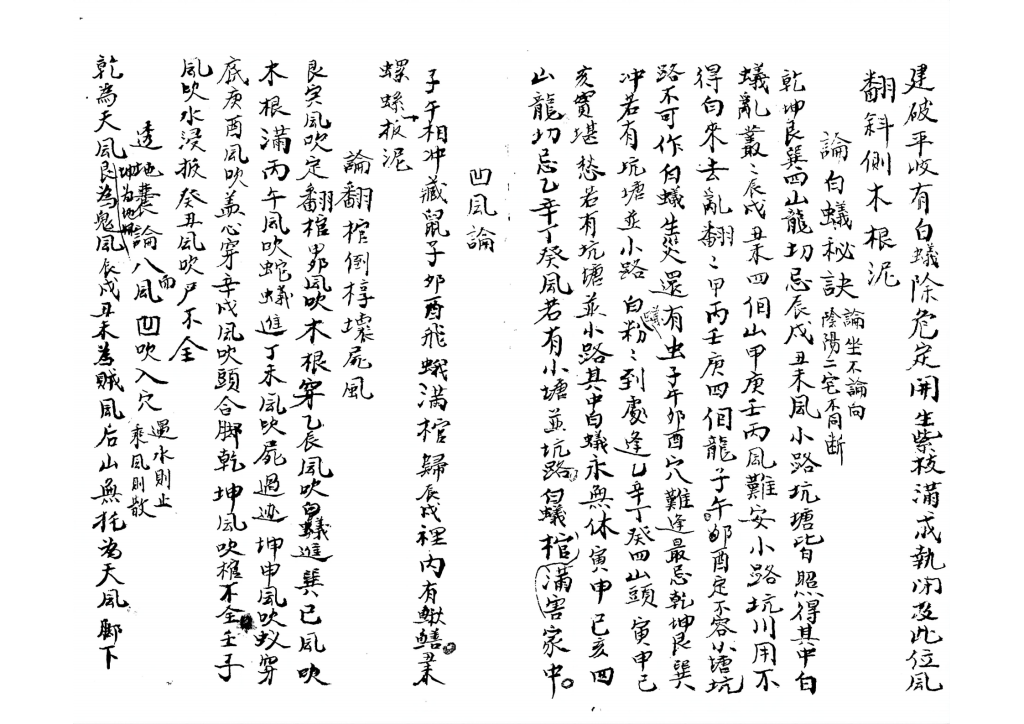 建破平收有白蟻除危定開生紫枝滿成執闭及此位風
翻斜側木根泥
論白蟻秘訣 論坐不論向 陰陽二宅不同断
乾坤艮巽四山龍切忌辰戌丑未風小路坑塘皆照得其中白
蟻亂叢〻辰戌丑未四個山甲庚壬丙風難安小路坑川用不
得白來去亂翻〻甲丙壬庚四個龍子午卯酉定不容小塘坑
路不可作白蟻生災還有虫子午卯酉穴難逢最忌乾坤艮巽
冲若有坑塘並小路白蟻粉〻到處逢乙辛丁癸四山頭寅申巳
亥實堪愁若有坑塘並小路其中白蟻永無休寅申巳亥四
山龍切忌乙辛丁癸風若有小塘並坑路白蟻棺滿害家中。
凹風論
子午相冲藏鼠子卯酉飛蛾滿棺歸辰戌裡内有鰍鱔丑未
螺螄板泥
論翻棺倒椁壞屍風
艮寅風吹定翻棺甲卯風吹木根穿乙辰風吹白蟻進巽巳風吹
木根滿丙午風吹蛇蟻進丁未風吹屍過迹坤申風吹蚁穿
底庚酉風吹盖心穿辛戌風吹頭合脚乾坤風吹棺不全壬子
風吹水浸板癸丑風吹尸不全
透地囊論八面風凹吹入穴 遇水則止 乘風則散
乾為天風坤為地風艮為鬼風辰戌丑未為賊風后山無托為天風脚下